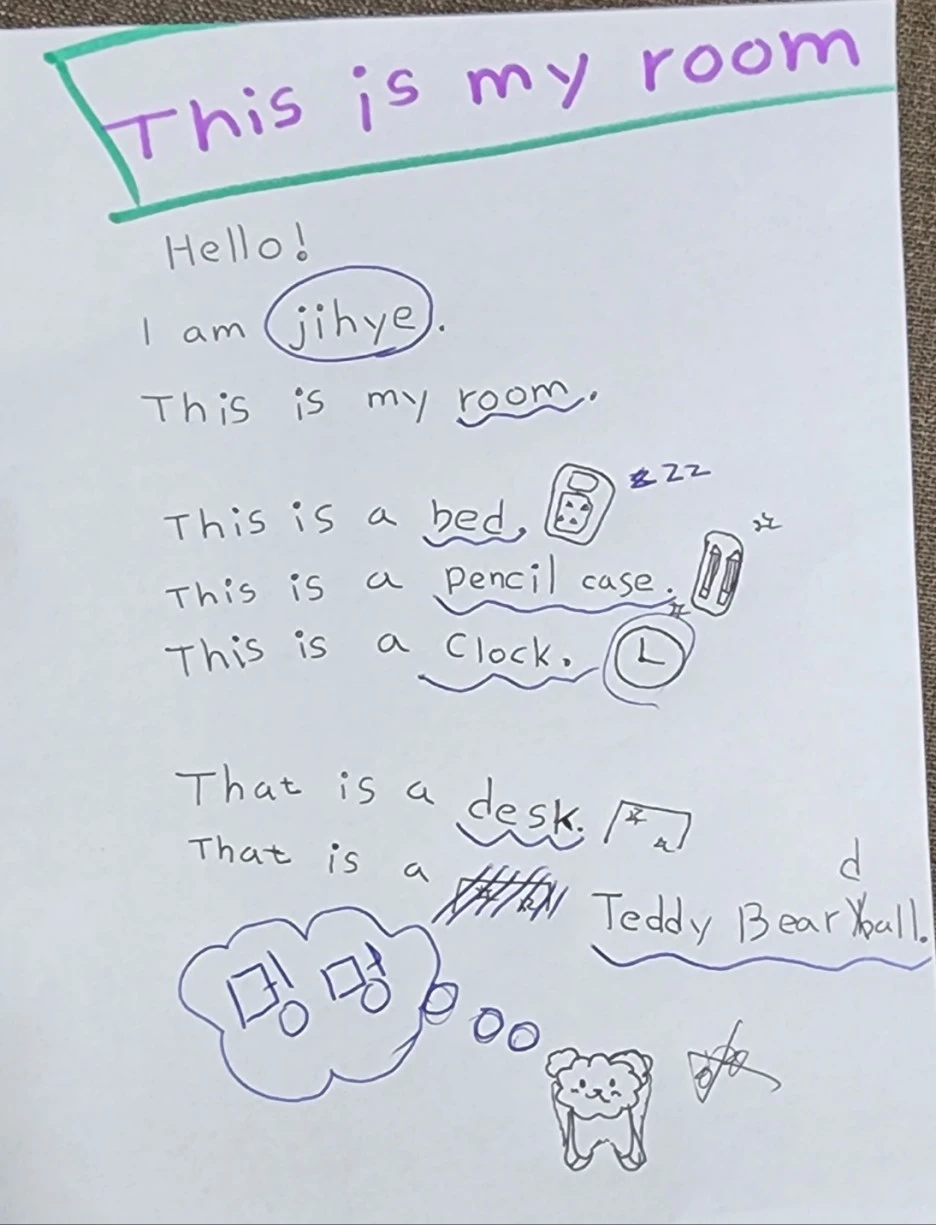 This is my room
Hello!
I am jihye.
This is my room.
This is a bed. zzz
This is a pencil case.
This is a Clock.
That is a desk.
That is a Teddy Bear dall.
멍! 멍!